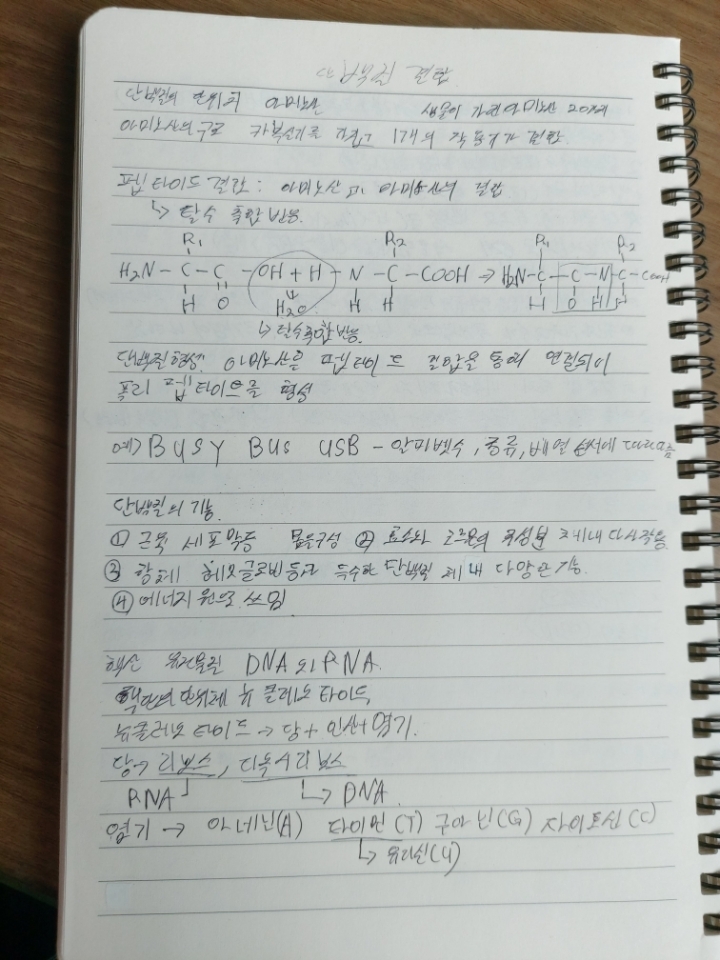 단백질 결합
단백질의 단위체 아미노산 생물이 가진 아미노산 20개
아미노산의 구조 카복실기를 1개의 작용기가 결합
펩타이드 결합: 아미노산과 아미노산의 결합
↳ 탈수 축합 반응.
R₁ R₂ R₁ R₂
H₂N - C - C - OH + H - N - C - COOH → H₂N - C - C - N - C - COOH
H O H₂O H H H O H H
↳ 탈수축합 반응.
단백질형성: 아미노산은 펩타이드 결합을 통해 연결되어
폴리 펩타이드를 형성
예> BUSY BUS USB - 알파벳수, 종류, 배열 순서에 따라 다름
단백질의 기능
① 근육 세포막등 몸을구성 ② 효소와 호르몬의 구성분 체내 다사작용
③ 항체 헤모글로빈등과 특수한 단백질 체내 다양한 기능.
④ 에너지원으로 쓰임
핵산 유전물질 DNA와 RNA.
핵산의 단위체 뉴클레오타이드
뉴클레오타이드 → 당 + 인산 + 염기.
당 → 리보스, 디옥시리보스
RNA ↳ DNA.
염기 → 아데닌(A) 타이민(T) 구아닌(G) 사이토신(C)
↳ 유라실(U)